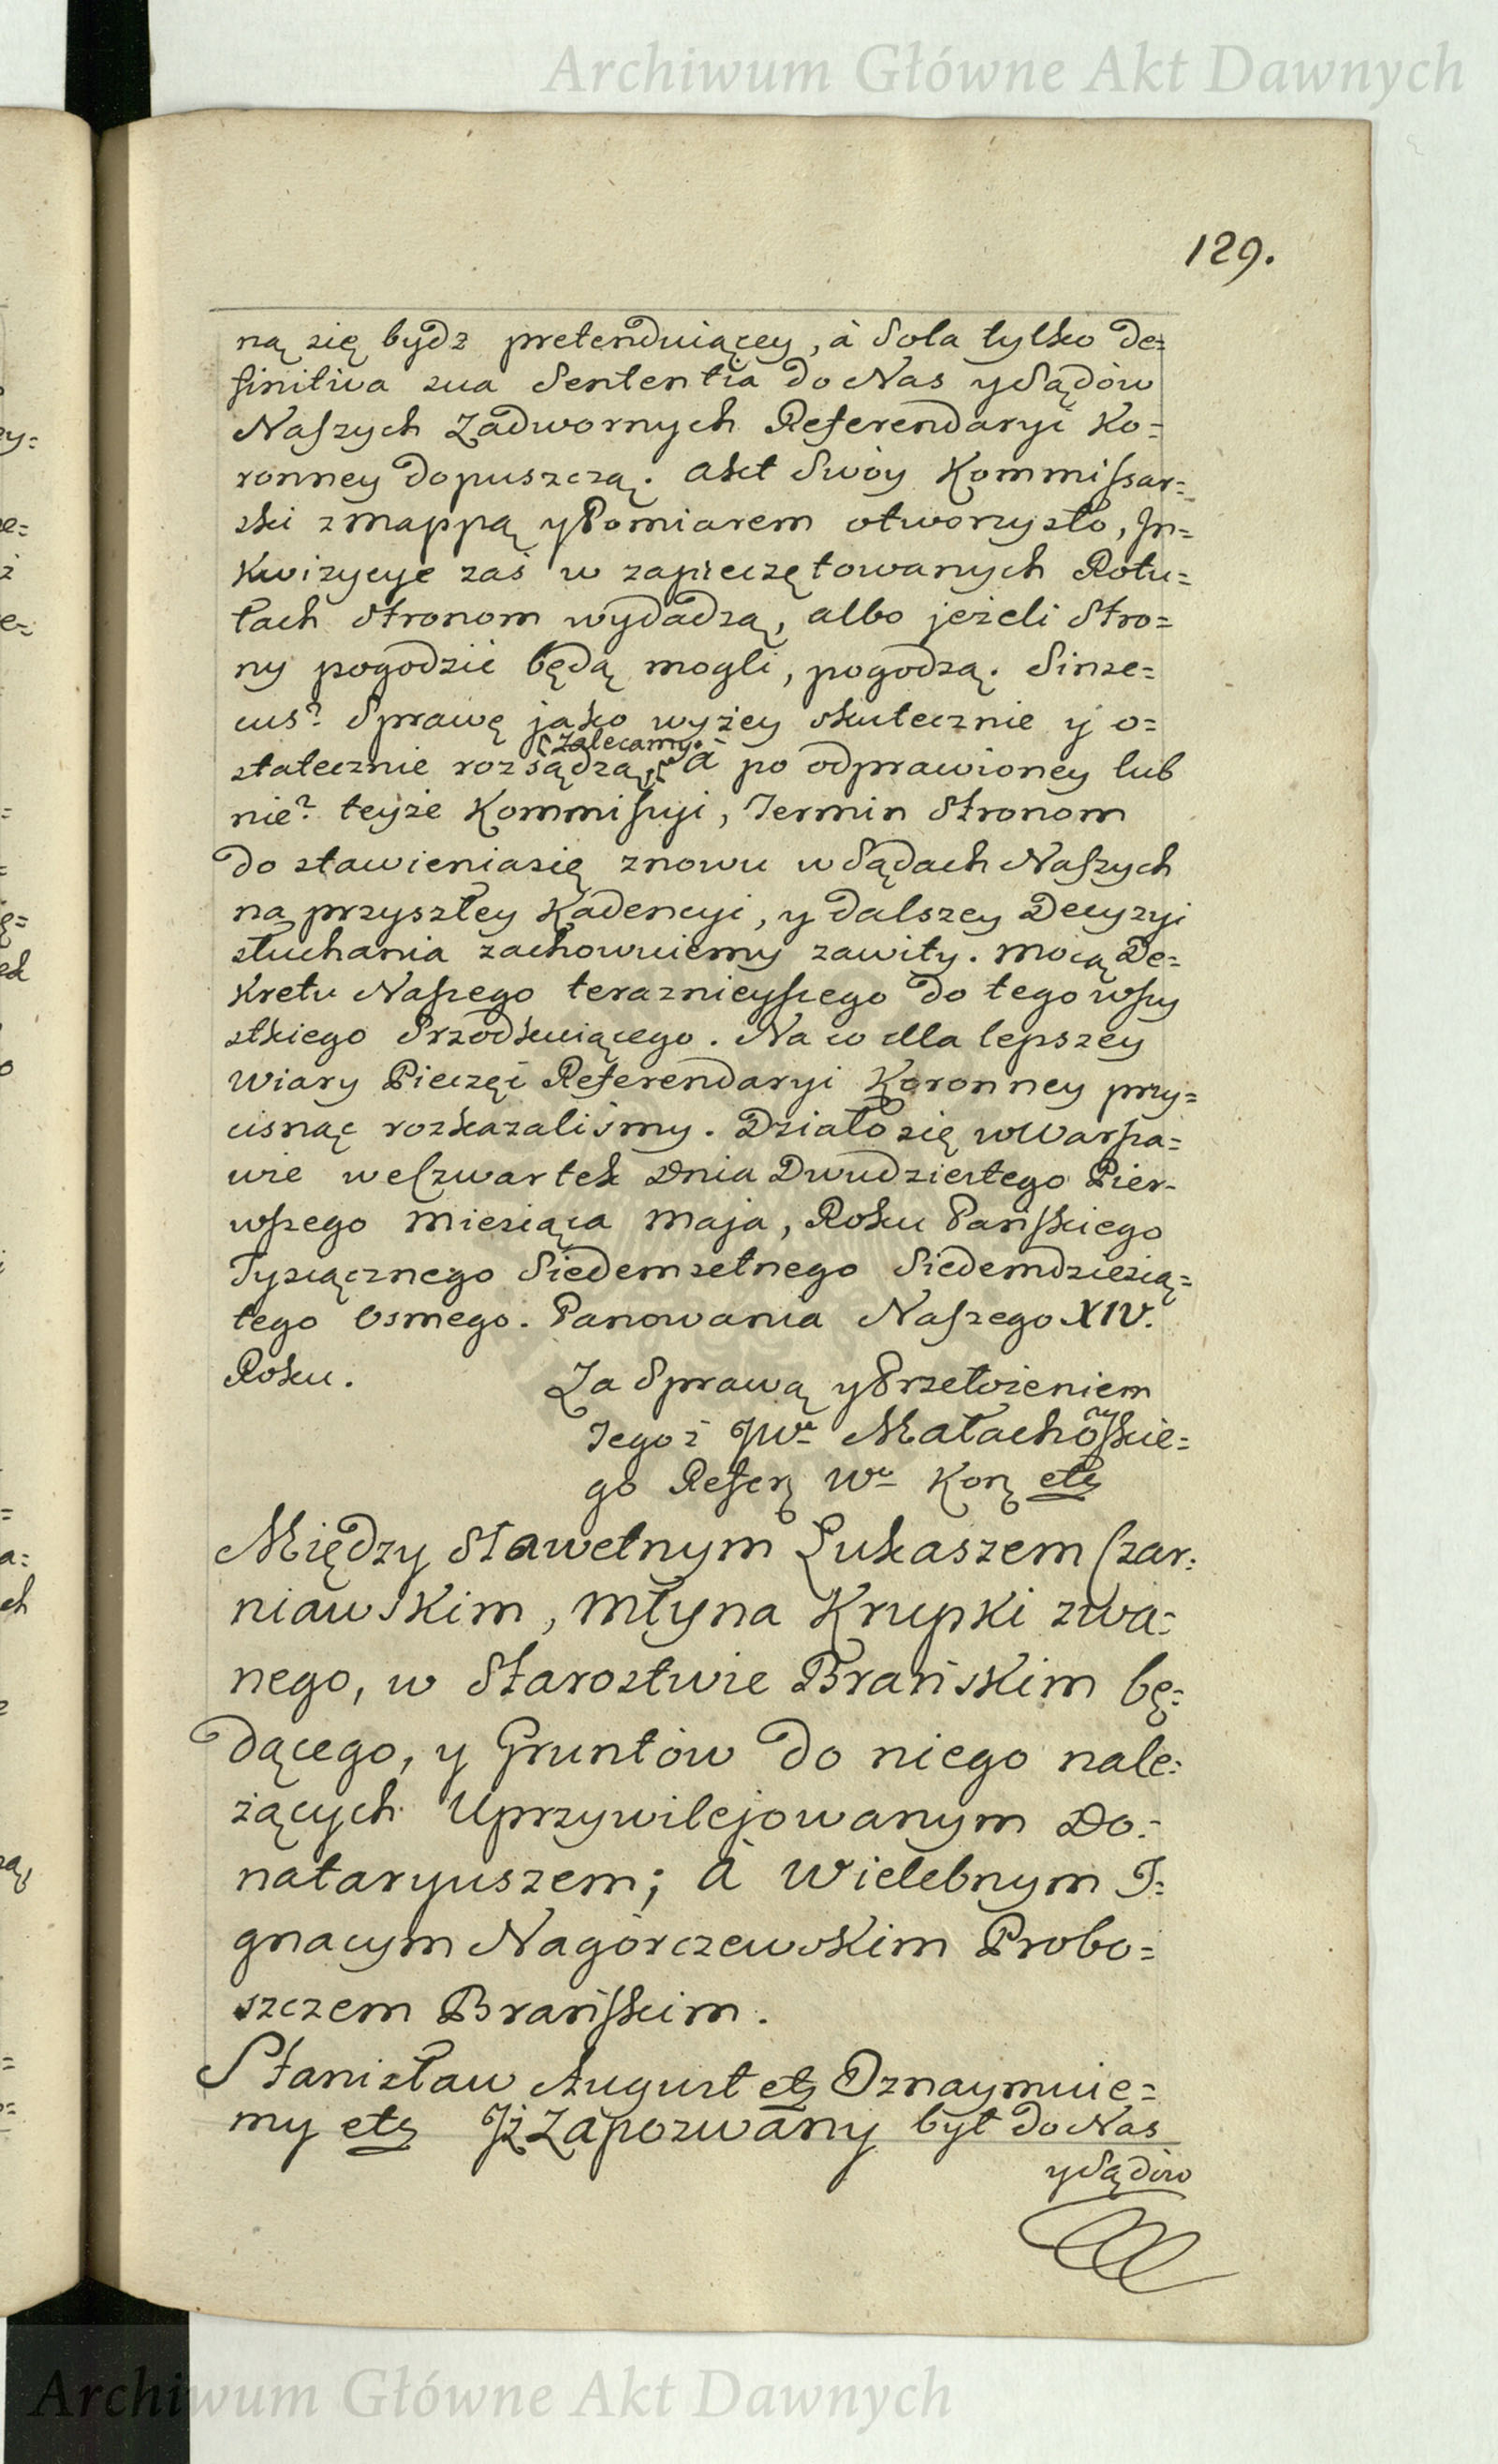 Archiwum Główne Akt Dawnych
129.
ną się bydz pretenduiącey, à Sola tylko de=
finitiva sua Sententia do Nas y Sądów
Naszych Zadwornych Referendaryi Ko=
ronney dopuszczą. Akt Swóy Kommissar=
ski z Mappą y Pomiarem otworzysto, In=
kwizycye zaś w zapieczętowanych Rotu=
łach Stronom wydadzą, albo jeżeli Stro=
ny pogodzić będą mogli, pogodzą. Sinse=
cus? Sprawę jako wyżey skutecznie y o=
zalecamy.
statecznie rozsądzą, à po odprawioney lub
nie? teyże Kommissyi, Termin Stronom
do stawienia się znowu w Sądach Naszych
na przyszłey Kadencyi, y dalszey Decyzyi
słuchania zachowuiemy zawity. Mocą De=
kretu Naszego teraznieyszego do tego wszy
stkiego Srzodkuiącego. Na co dla lepszey
Wiary Pieczęć Referendaryi Koronney przy=
cisnąć rozkazaliśmy. Działo się w Warsza=
wie we Czwartek Dnia Dwudziestego Pier-
wszego Miesiąca Maja, Roku Pańskiego
Tysiącznego Siedemsetnego Siedemdziesią=
tego Osmego. Panowania Naszego XIV.
Roku.
Za Sprawą y Przełożeniem
Tegoż JWo Małachowskie=
go Refer. Wo Kor. etc
Między Sławetnym Łukaszem Czar=
niawskim, Młyna Krupki zwa=
nego, w Starostwie Brańskim bę=
dącego, y Gruntów do niego nale=
żących Uprzywilejowanym Do=
nataryuszem; à Wielebnym I=
gnacym Nagórczewskim Probo=
szczem Brańskim.
Stanisław August etc Oznaymuie=
my etc Iż Zapozwany był do Nas
y Sądów
Archiwum Główne Akt Dawnych